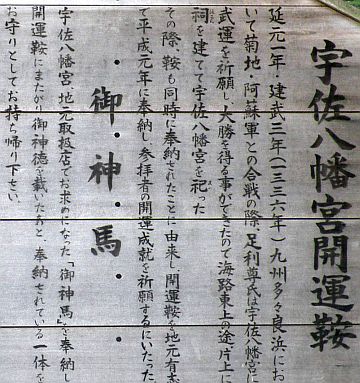 宇佐八幡宮開運鞍
延元一年・建武三年(一三三六年)九州多々良浜にお
いて菊地・阿蘇軍との合戦の際、足利尊氏は宇佐八幡宮に
武運を祈願し大勝を得る事ができたので海路東上の途片上に
祠を建てて宇佐八幡宮を祀った
その際、鞍も同時に奉納されたことに由来し、開運鞍を地元有志
で平成元年に奉納し参拝者の開運成就を祈願するにいたった。
御・神・馬・
宇佐八幡宮地元取扱店でお求めになった「御神馬」を奉納し
開運鞍にまたがり御神徳を戴いたあと、奉納されている一体を
お守りとしてお持ち帰り下さい。